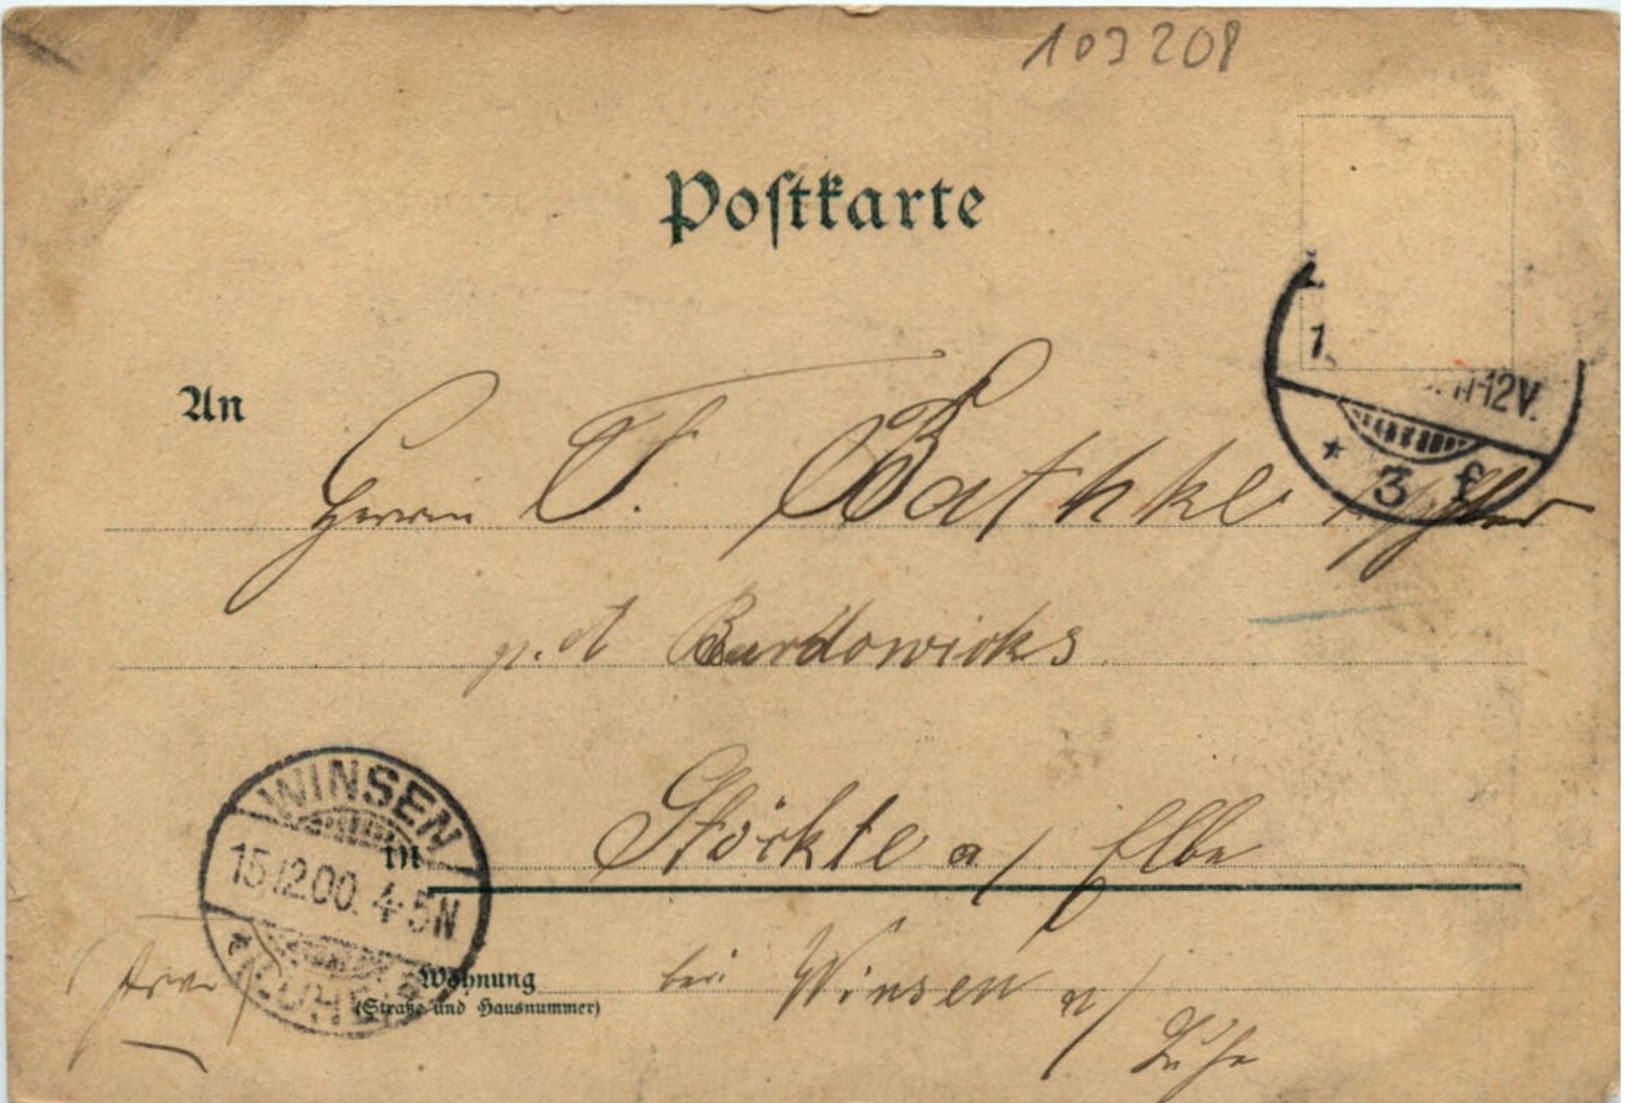 103208
Postkarte
1. 11-12V.
* 3 f
An
Herrn F. Bathke
p. d Bardowicks
WINSEN
15.12.00. 4-5N
(LUHE)
in Stöckte a/ Elbe
Wohnung bei Winsen a/
(Straße und Hausnummer)
Luhe